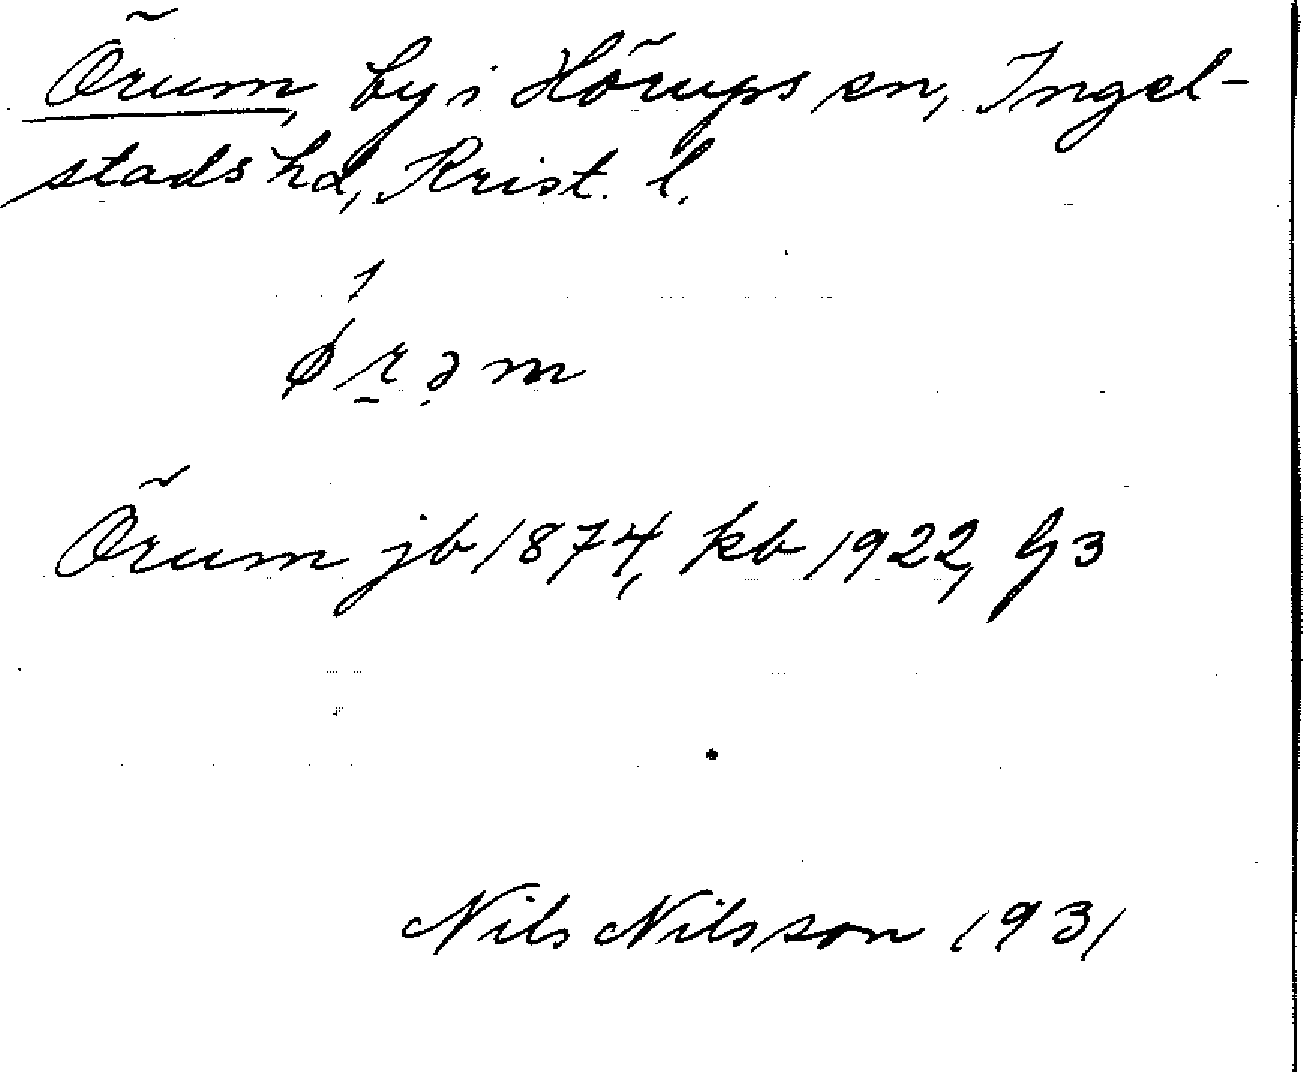 Örum, by i Hörups sn, Ingel-
stads hd, Krist. l.
ǿrəm
Örum jb 1874, kb 1922, G3
Nils Nilsson 1931